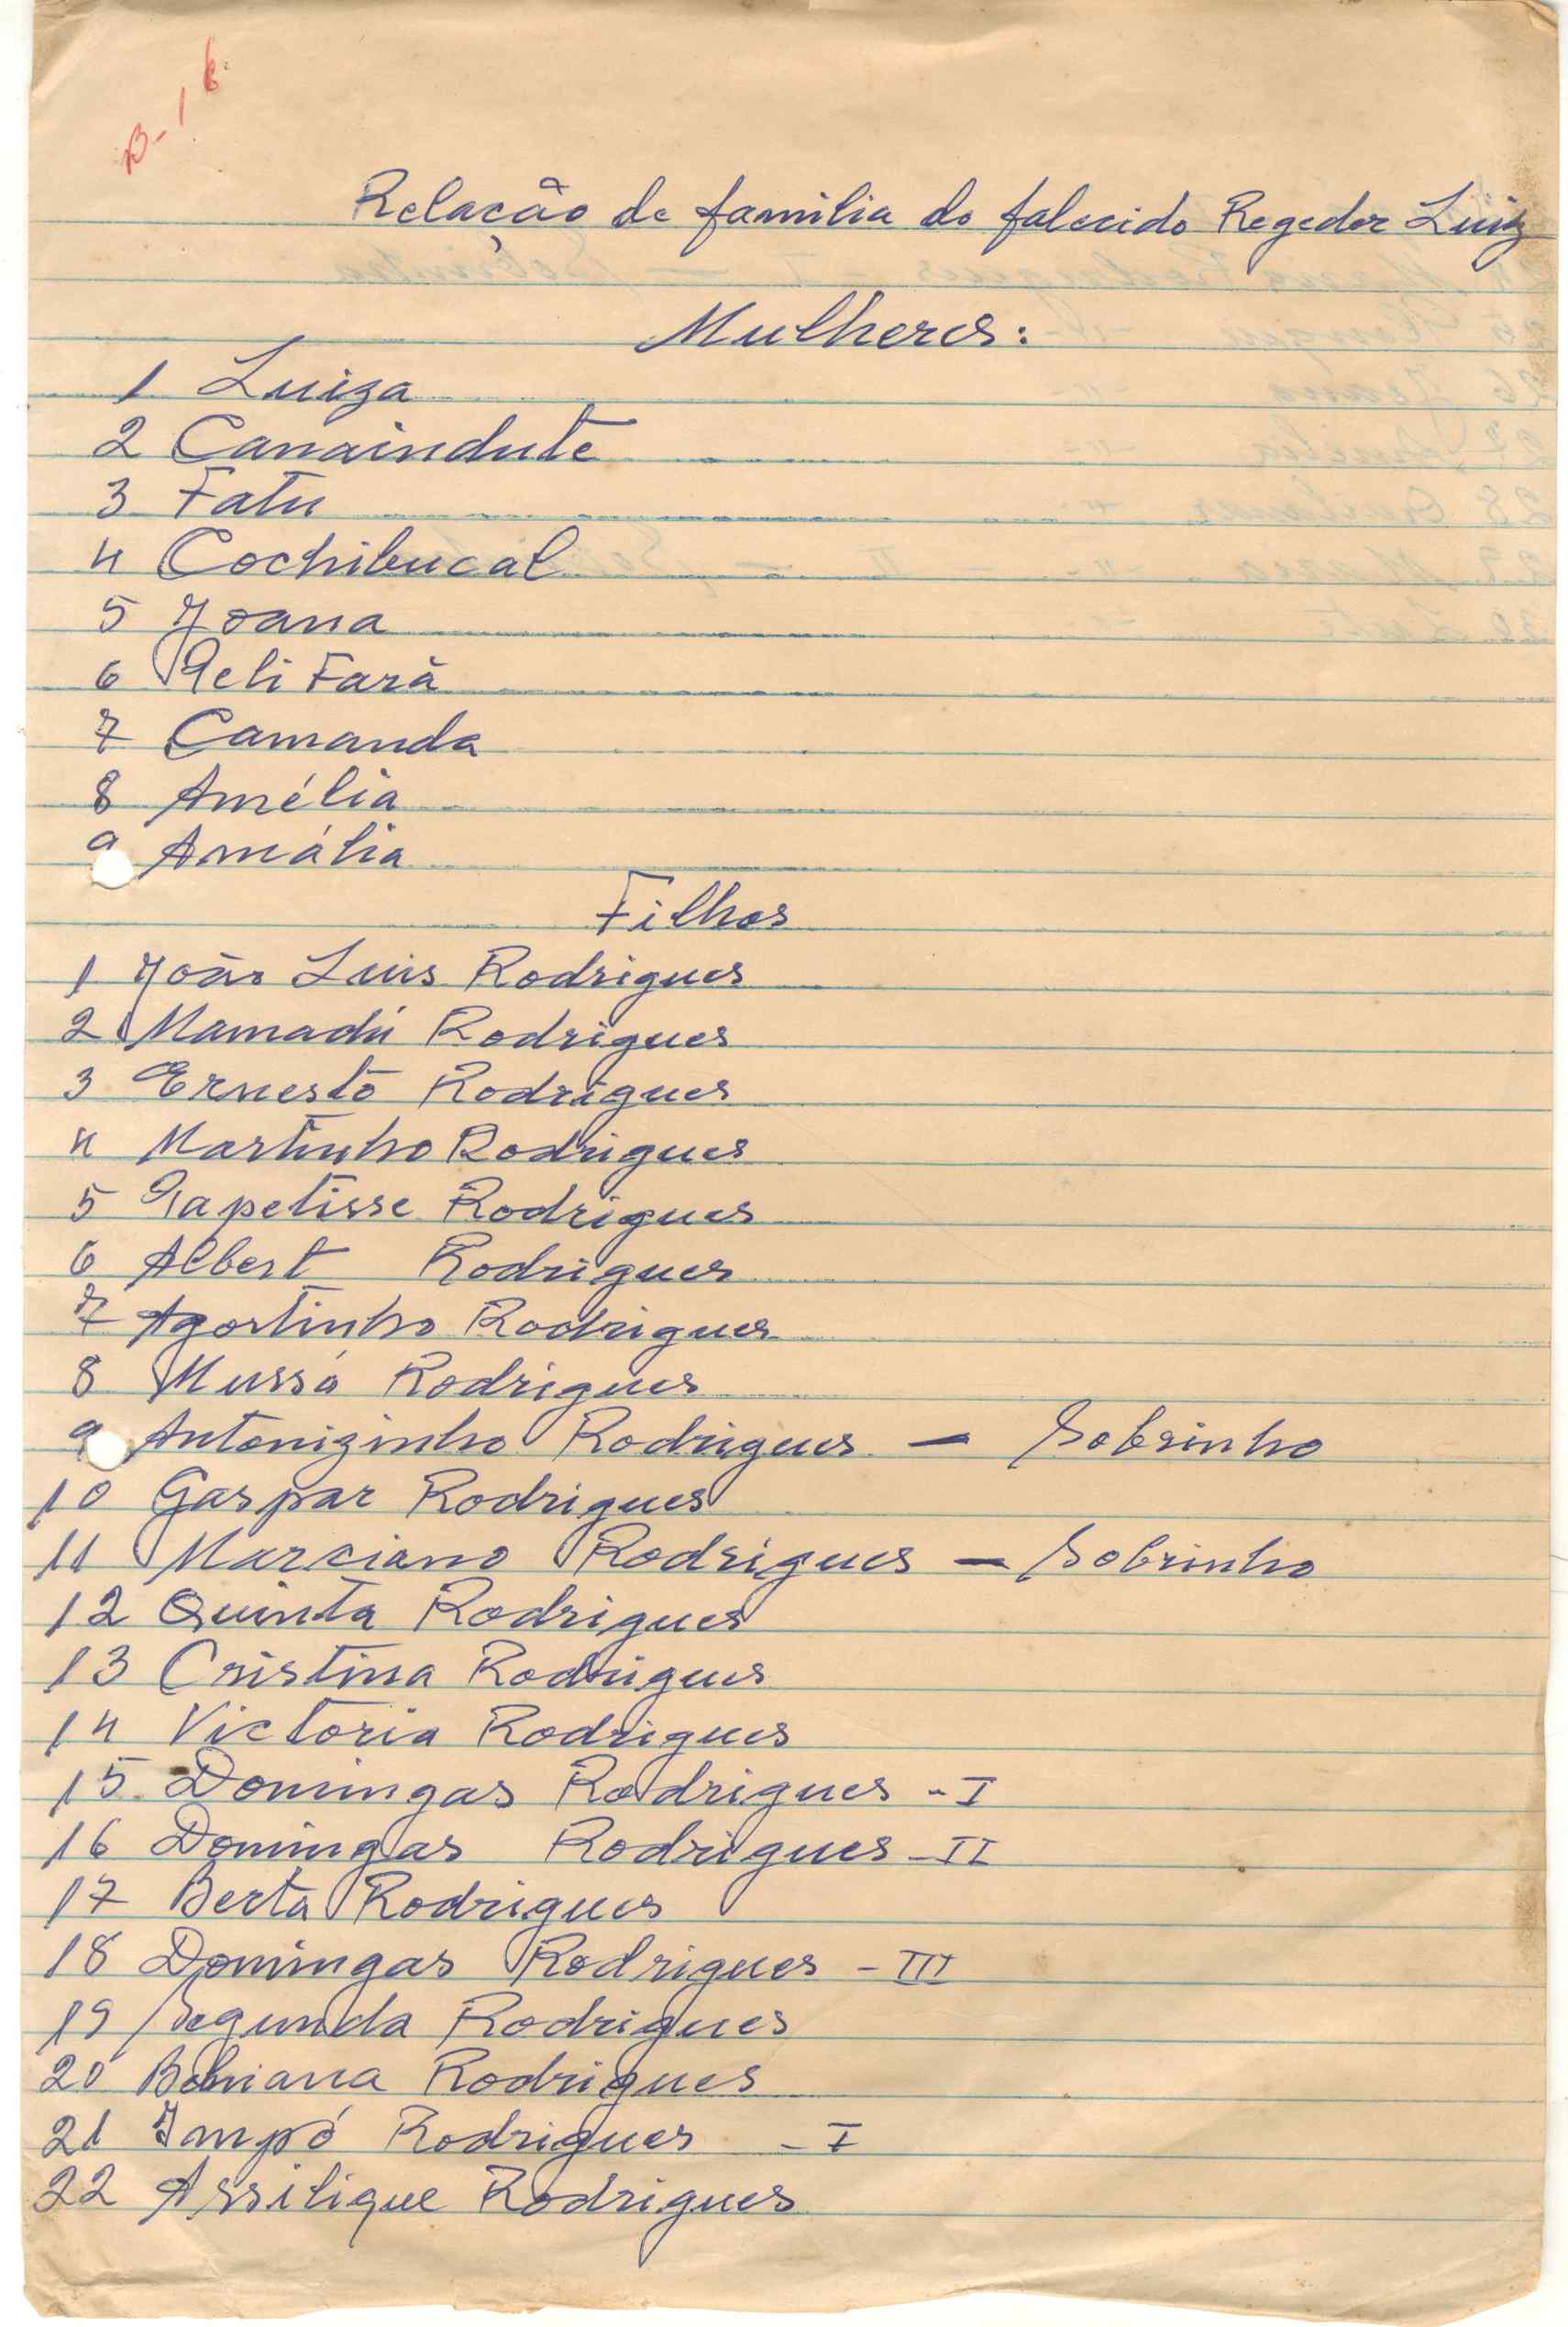 B-1
Relação de familia do falecido Regedor Luiz
Mulheres:
1 Luiza
2 Canaindute
3 Fatu
4 Cochibucal
5 Joana
6 Geli Fará
7 Camanda
8 Amélia
9 Amália
Filhos
1 João Luis Rodrigues
2 Mamadú Rodrigues
3 Ernesto Rodrigues
4 Martinho Rodrigues
5 Gapetisse Rodrigues
6 Albert Rodrigues
7 Agostinho Rodrigues
8 Mussá Rodrigues
9 Antonizinho Rodrigues - Sobrinho
10 Gaspar Rodrigues
11 Marciano Rodrigues - Sobrinho
12 Quinta Rodrigues
13 Cristina Rodrigues
14 Victoria Rodrigues
15 Domingas Rodrigues - I
16 Domingas Rodrigues - II
17 Berta Rodrigues
18 Domingas Rodrigues - III
19 Segunda Rodrigues
20 Rodrigues
21 Impó Rodrigues - I
22 Assilique Rodrigues